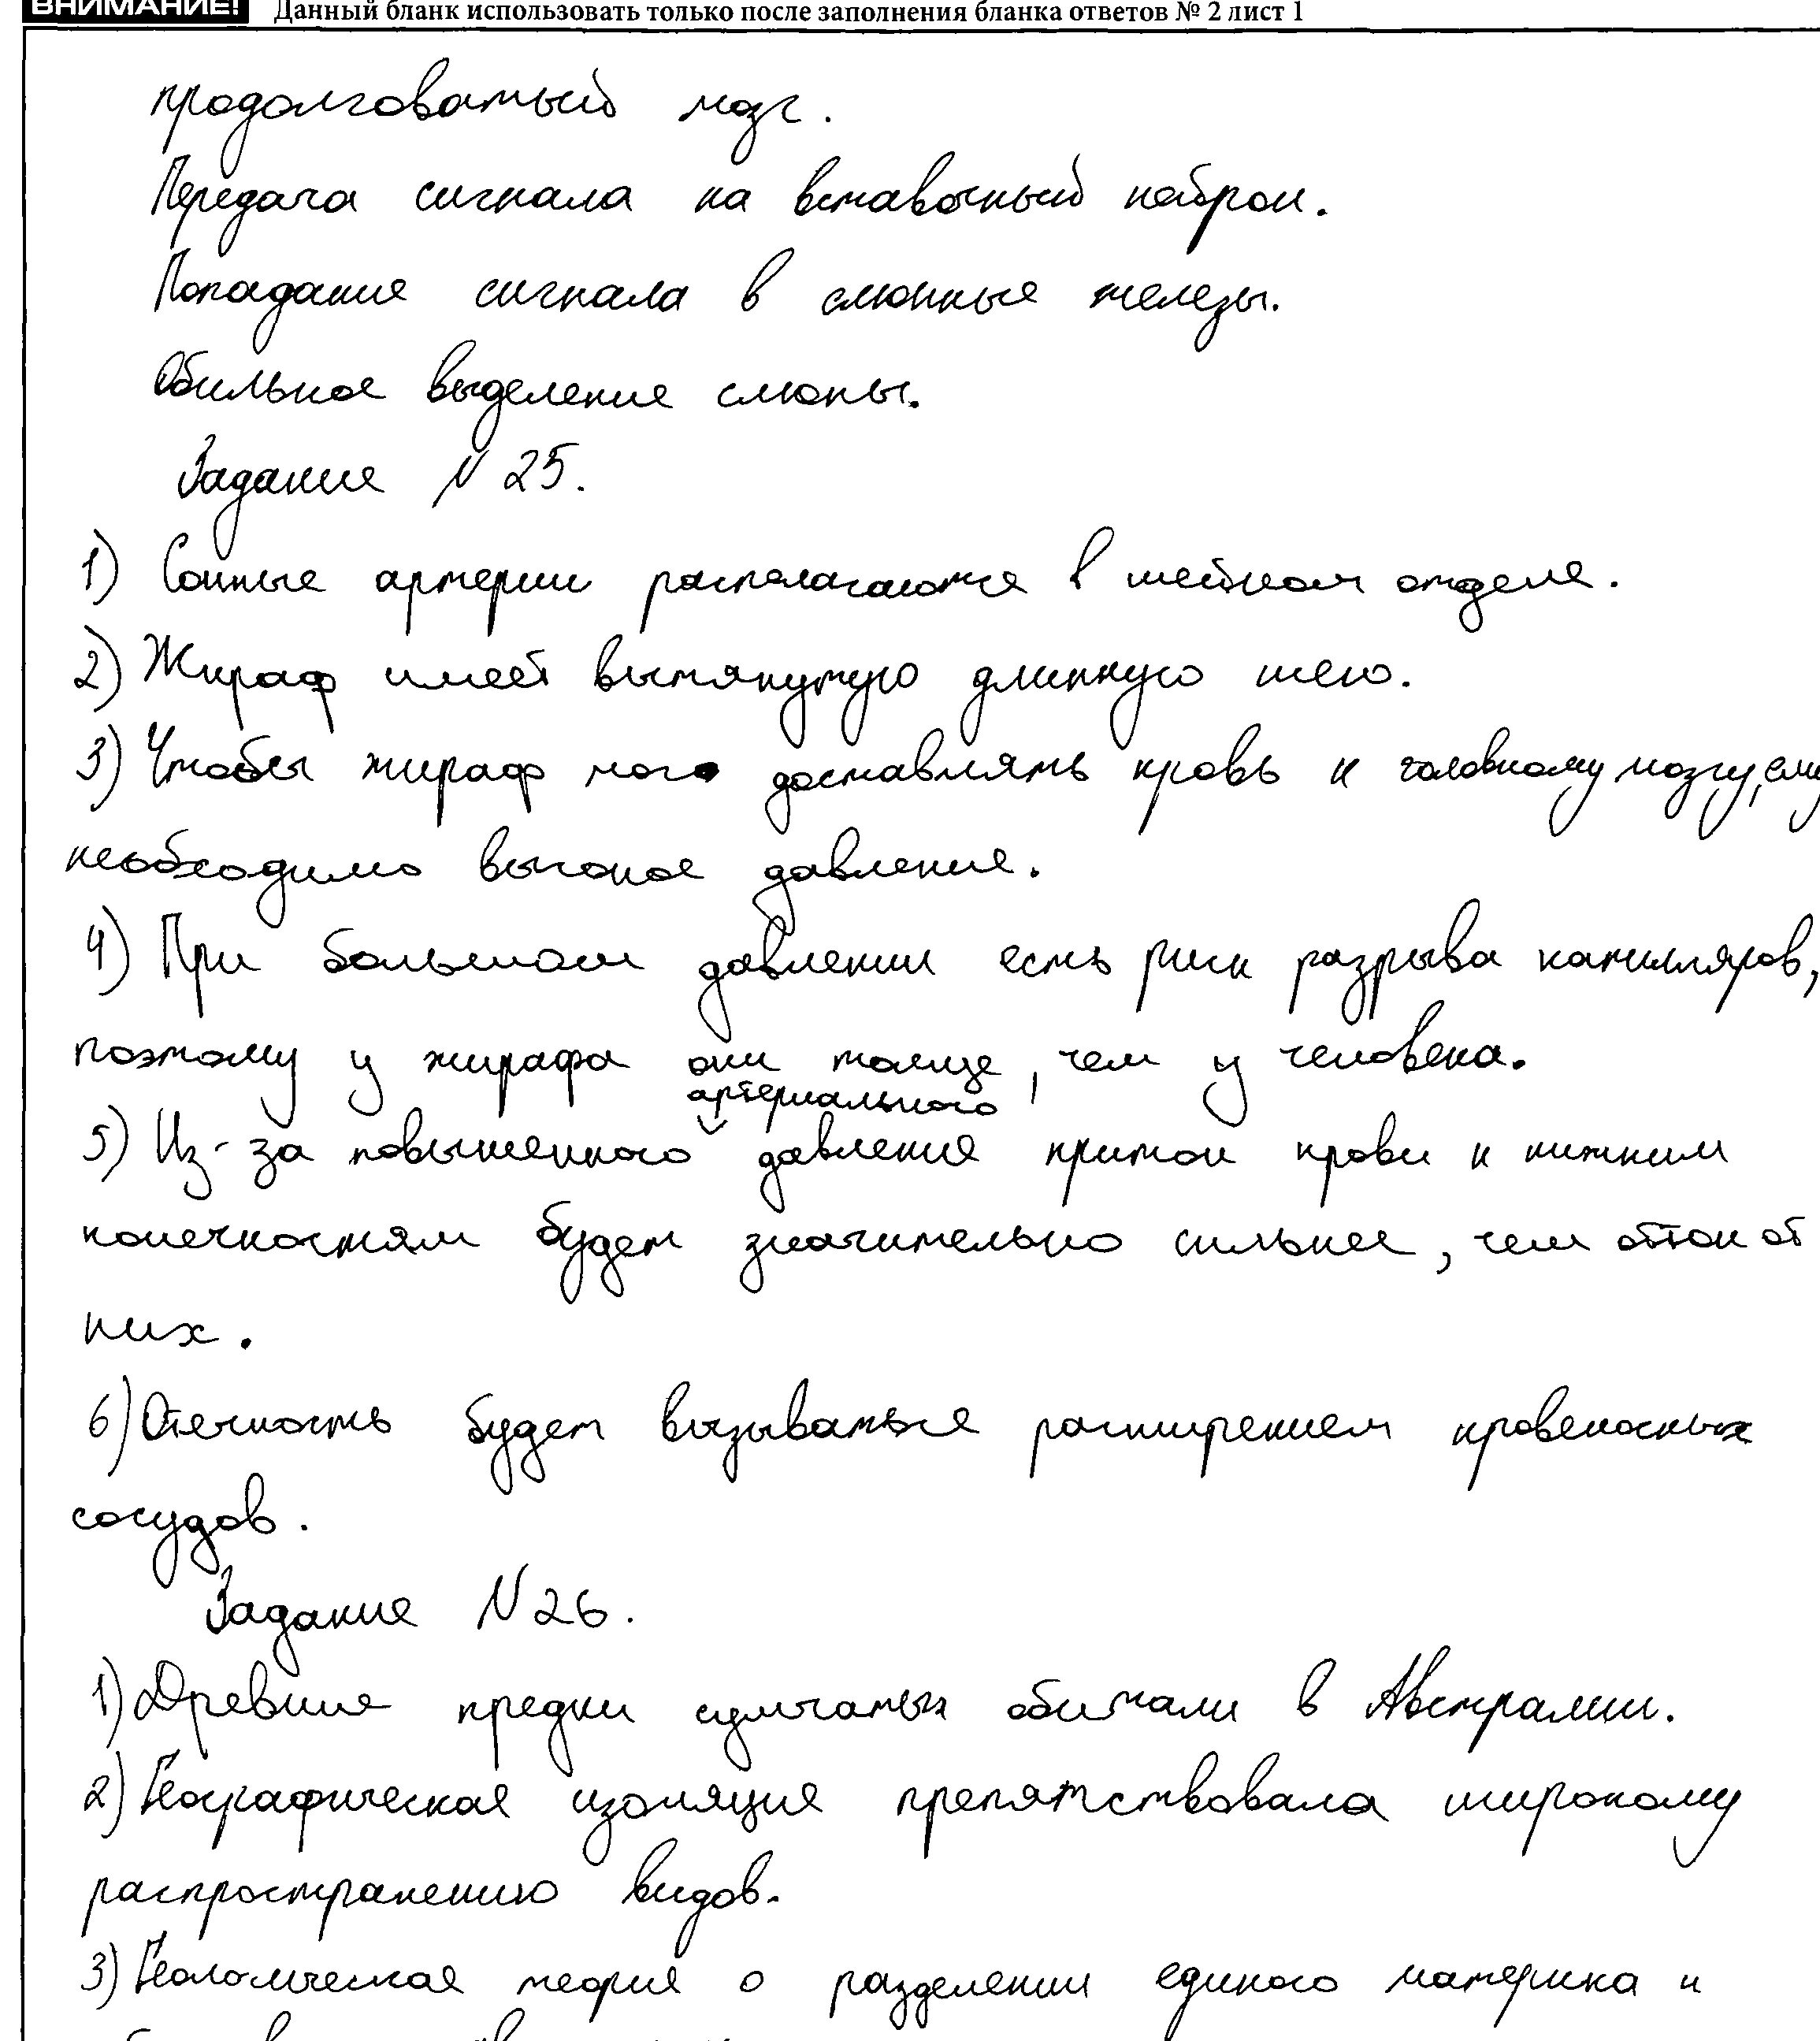 ВНИМАНИЕ! Данный бланк использовать только после заполнения бланка ответов № 2 лист 1
продолговатый мозг.
Передача сигнала на вставочный нейрон.
Попадание сигнала в слюнные железы.
Обильное выделение слюны.
Задание N 25.
1) Сонные артерии располагаются в шейном отделе.
2) Жираф имеет вытянутую длинную шею.
3) Чтобы жираф мог доставлять кровь к головному мозгу, ему
необходимо высокое давление.
4) При большом давлении есть риск разрыва капилляров,
поэтому у жирафа они толще, чем у человека.
артериального
5) Из-за повышенного давления приток крови к нижним
конечностям будет значительно сильнее, чем отток от
них.
6) Отечность будет вызываться расширением кровеносных
сосудов.
Задание N 26.
1) Древние предки сумчатых обитали в Австралии.
2) Географическая изоляция препятствовала широкому
распространению видов.
3) Геологическая теория о разделении единого материка и